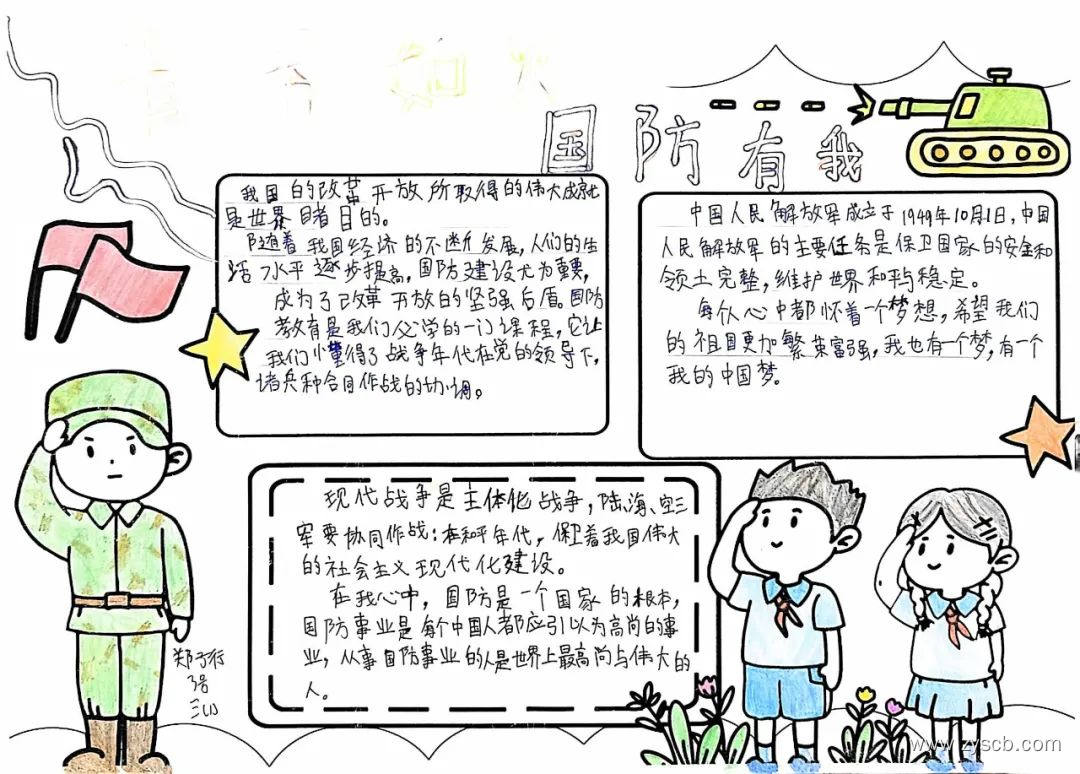 国防有我
我国的改革开放所取得的伟大成就
是世界睹目的。
随着我国经济的不断发展，人们的生
活水平逐步提高，国防建设尤为重要，
成为了改革开放的坚强后盾。国防
教育是我们必学的一门课程，它让
我们懂得了战争年代在党的领导下，
诸兵种合同作战的协调。
中国人民解放军成立于1949年10月1日，中国
人民解放军的主要任务是保卫国家的安全和
领土完整，维护世界和平与稳定。
每个人心中都怀着一个梦想，希望我们
的祖国更加繁荣富强，我也有一个梦，有一个
我的中国梦。
现代战争是主体化战争，陆、海、空三
军要协同作战；在和平年代，保卫着我国伟大
的社会主义现代化建设。
在我心中，国防是一个国家的根本，
国防事业是每个中国人都应引以为高尚的事
业，从事国防事业的人是世界上最高尚与伟大的
人。
3号
www.zyscb.com